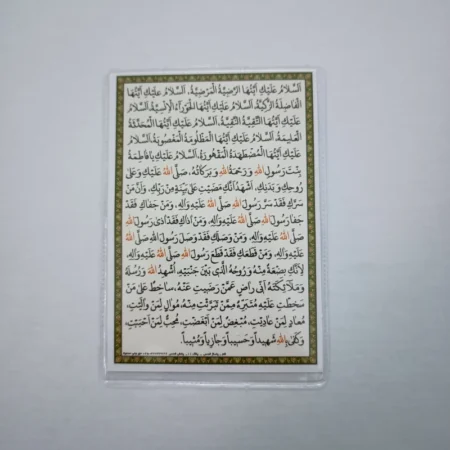 اَلسَّلَامُ عَلَيْكِ اَيَّتُهَا الرَّضِيَّةُ الْمَرْضِيَّةُ، اَلسَّلَامُ عَلَيْكِ اَيَّتُهَا
الْفَاضِلَةُ الزَّكِيَّةُ، اَلسَّلَامُ عَلَيْكِ اَيَّتُهَا الْحَوْرَاءُ الْاِنْسِيَّةُ، اَلسَّلَامُ
عَلَيْكِ اَيَّتُهَا التَّقِيَّةُ النَّقِيَّةُ، اَلسَّلَامُ عَلَيْكِ اَيَّتُهَا الْمُحَدَّثَةُ
الْعَلِيمَةُ، اَلسَّلَامُ عَلَيْكِ اَيَّتُهَا الْمَظْلُومَةُ الْمَغْصُوبَةُ، اَلسَّلَامُ
عَلَيْكِ اَيَّتُهَا الْمُضْطَهَدَةُ الْمَقْهُورَةُ، اَلسَّلَامُ عَلَيْكِ يَا فَاطِمَةُ
بِنْتَ رَسُولِ اللهِ وَرَحْمَةُ اللهِ وَبَرَكَاتُهُ، صَلَّى اللهُ عَلَيْكِ وَعَلَى
رُوحِكِ وَبَدَنِكِ، اَشْهَدُ اَنَّكِ مَضَيْتِ عَلَى بَيِّنَةٍ مِنْ رَبِّكِ، وَاَنَّ مَنْ
سَرَّكِ فَقَدْ سَرَّ رَسُولَ اللهِ صَلَّى اللهُ عَلَيْهِ وَآلِهِ، وَمَنْ جَفَاكِ فَقَدْ
جَفَا رَسُولَ اللهِ صَلَّى اللهُ عَلَيْهِ وَآلِهِ، وَمَنْ آذَاكِ فَقَدْ آذَى رَسُولَ اللهِ
صَلَّى اللهُ عَلَيْهِ وَآلِهِ، وَمَنْ وَصَلَكِ فَقَدْ وَصَلَ رَسُولَ اللهِ صَلَّى اللهُ
عَلَيْهِ وَآلِهِ، وَمَنْ قَطَعَكِ فَقَدْ قَطَعَ رَسُولَ اللهِ صَلَّى اللهُ عَلَيْهِ وَآلِهِ،
لِاَنَّكِ بَضْعَةٌ مِنْهُ وَرُوحُهُ الَّذِي بَيْنَ جَنْبَيْهِ، اُشْهِدُ اللهَ وَرُسُلَهُ
وَمَلَائِكَتَهُ اَنِّي رَاضٍ عَمَّنْ رَضِيتِ عَنْهُ، سَاخِطٌ عَلَى مَنْ
سَخِطْتِ عَلَيْهِ مُتَبَرِّءٌ مِمَّنْ تَبَرَّأْتِ مِنْهُ، مُوَالٍ لِمَنْ وَالَيْتِ،
مُعَادٍ لِمَنْ عَادَيْتِ، مُبْغِضٌ لِمَنْ اَبْغَضْتِ، مُحِبٌّ لِمَنْ اَحْبَبْتِ،
وَكَفَى بِاللهِ شَهِيداً وَحَسِيباً وَجَازِياً وَمُثِيباً.